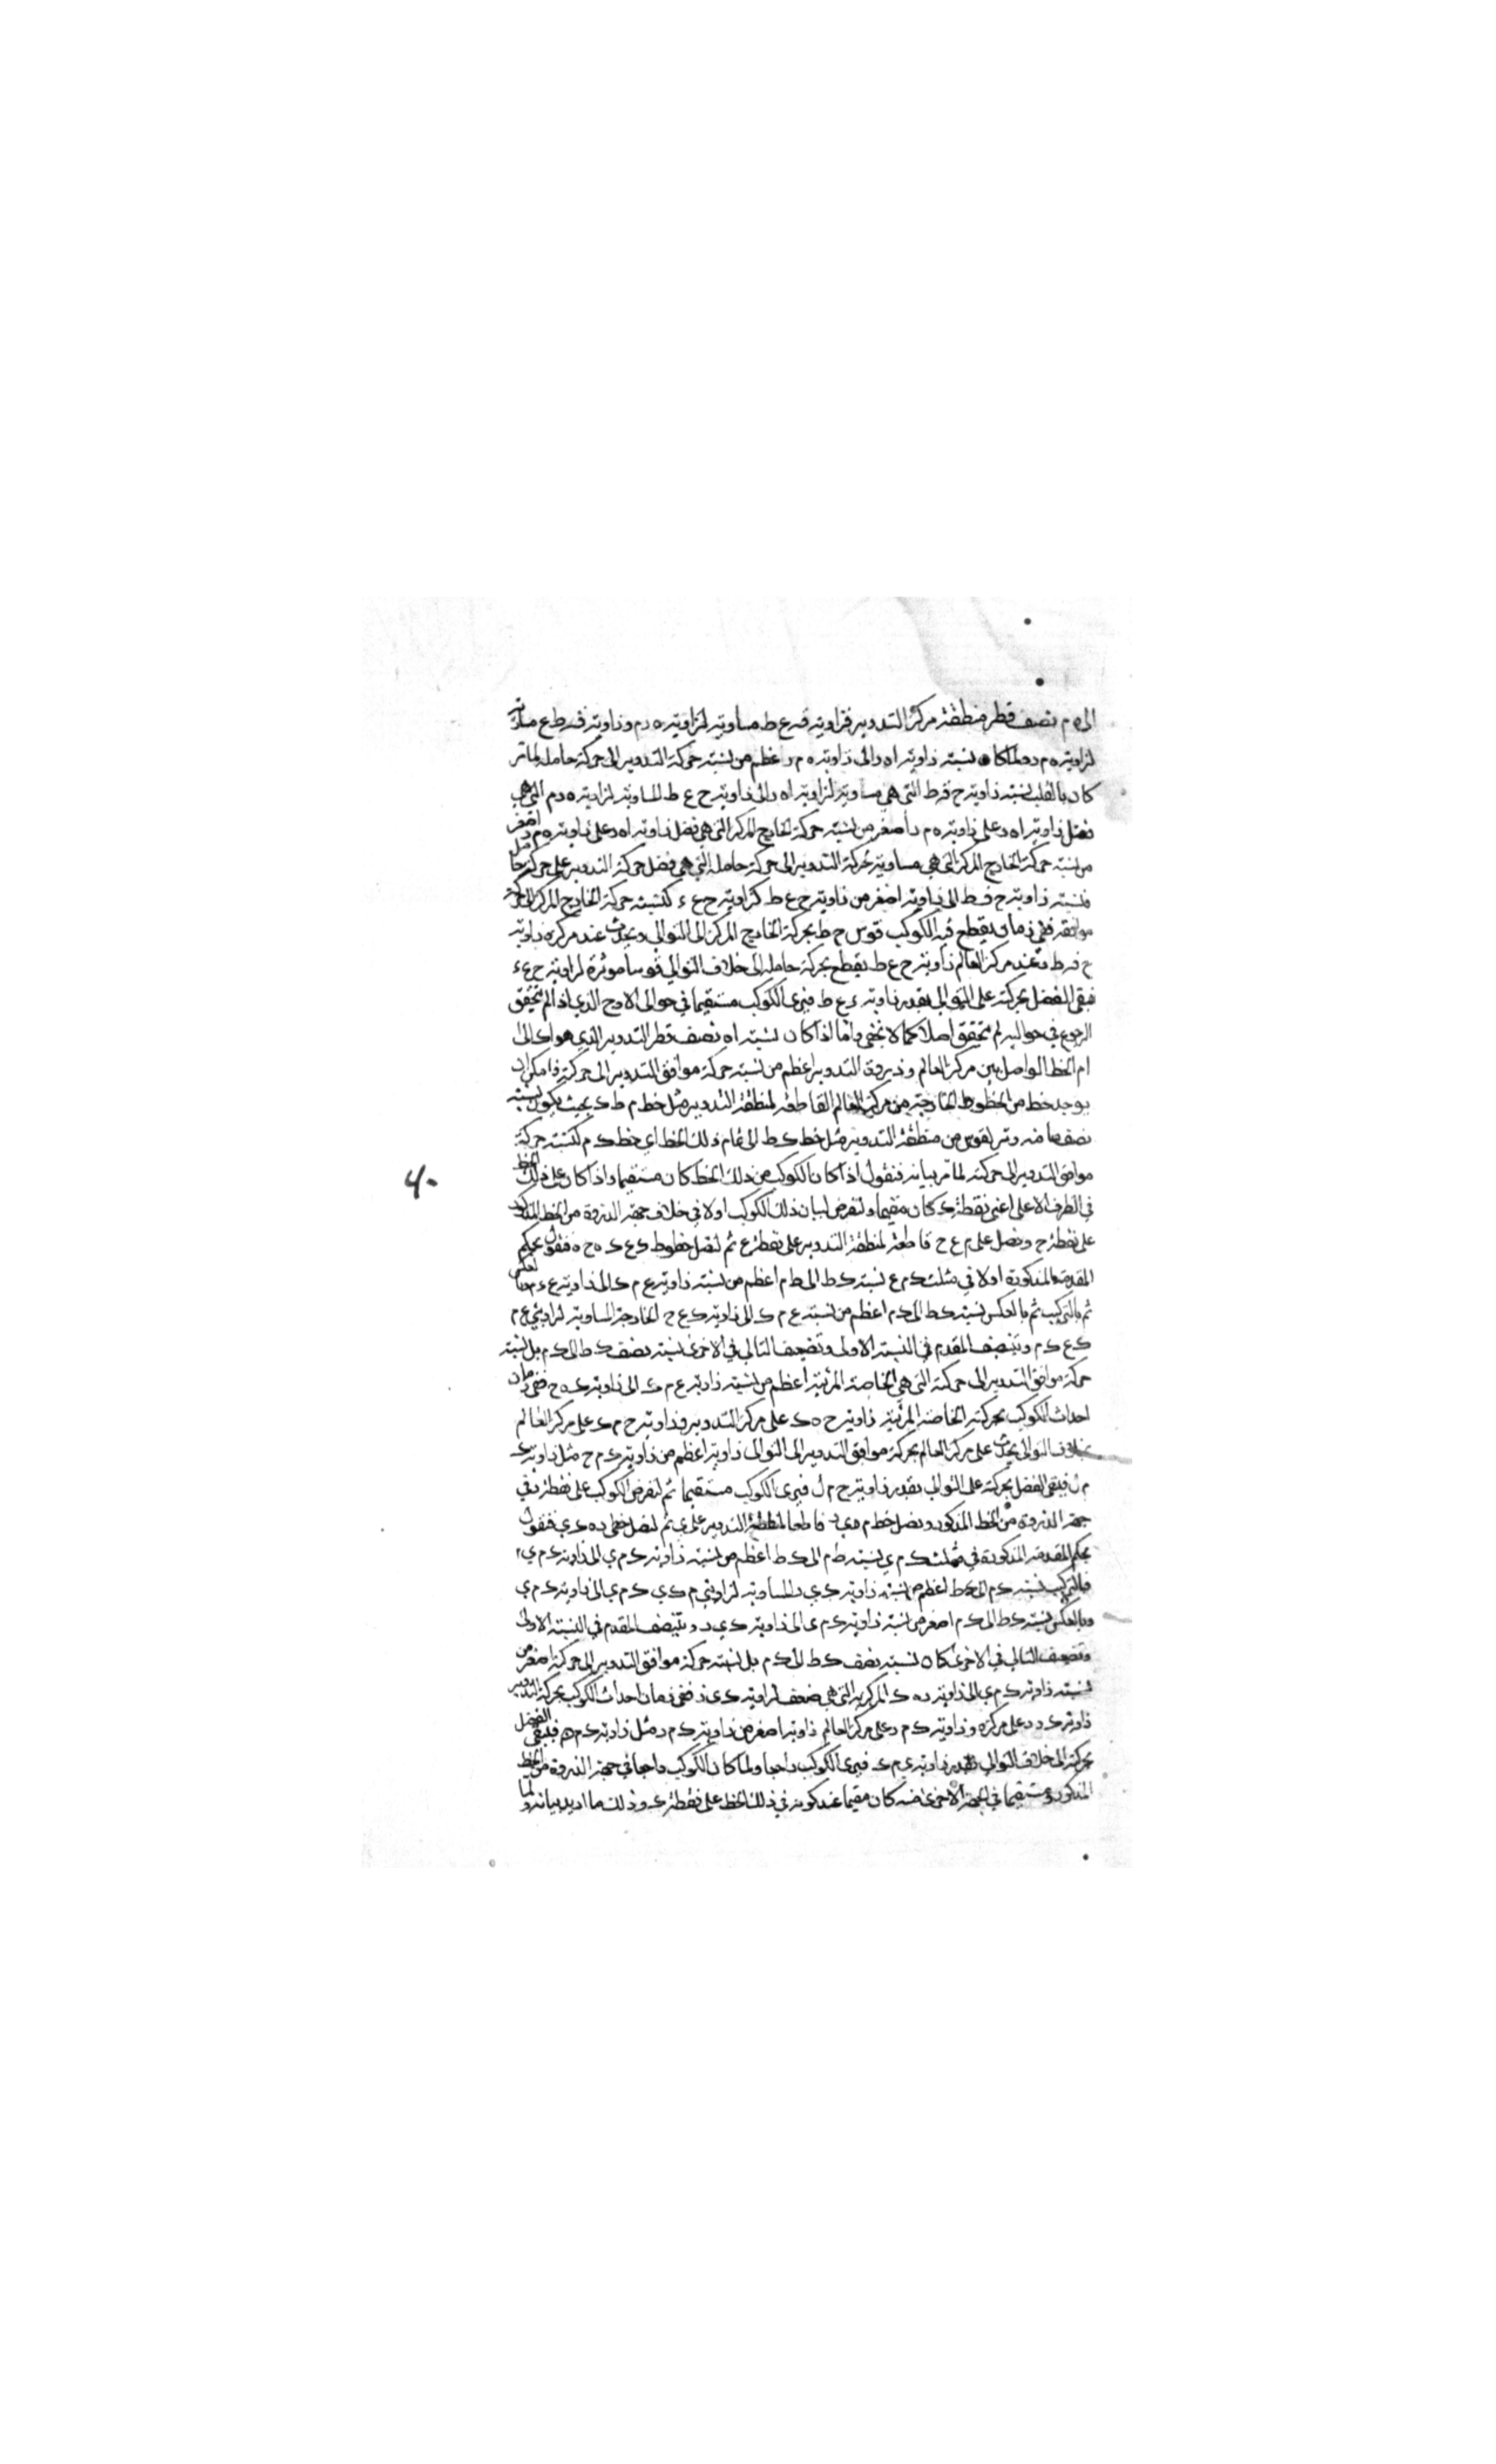 الى ه م نصف قطر منطقة مركز التدوير فزاوية ف ع ط مساوية لزاوية ه د م وزاوية ف ط ع مساوية
لزاوية ه م د ولما كان نسبة زاوية ا ه د الى زاوية ه م د اعظم من نسبة حركة التدوير الى حركة حامله لما مر
كان بالقلب نسبة زاوية ح ف ط التي هي مساوية لزاوية ا ه د الى زاوية ح ع ط المساوية لزاوية ه د م التي هي
فضل زاوية ا ه د على زاوية ه م د اصغر من نسبة حركة الخارج المركز التي هي فضل زاوية ا ه د على زاوية ه م د اصغر
من نسبة حركة الخارج المركز التي هي مساوية لحركة التدوير الى حركة حامله التي هي فضل حركة التدوير على حركة حامل
فنسبة زاوية ح ف ط الى زاوية اصغر من زاوية ح ع ط كزاوية ح ع ء كنسبة حركة الخارج المركز الى حركة
موافقه ففي زمان يقطع فيه الكوكب قوس ح ط بحركة الخارج المركز الى التوالي ويحدث عند مركزه زاوية
ح ف ط وعند مركز العالم زاوية ح ع ط يقطع بحركة حامله الى خلاف التوالي قوسا موترة لزاوية ح ع ء
فبقي الفضل لحركته على التوالي بقدر زاوية ء ع ط فيرى الكوكب مستقيما في حوالى الاوج الذي اذا لم يتحقق
الرجوع في حواليه لم يتحقق اصلا كما لا يخفى واما اذا كان نسبة ا ه نصف قطر التدوير الذي هو ا ك الى
ا م الخط الواصل بين مركز العالم وذروة التدوير اعظم من نسبة حركة موافق التدوير الى حركته فامكن ان
يوجد خط من الخطوط الخارجة من مركز العالم القاطعة لمنطقة التدوير مثل خط م ط ك بحيث يكون نسبة
نصف ما منه وتر لقوس من منطقة التدوير مثل خط ك ط الى تمام ذلك الخط اي خط ك م كنسبة حركة
موافق التدوير الى حركته لما مر بيانه فنقول اذا كان الكوكب من ذلك الخط كان مستقيما واذا كان على ذلك الخط
في الطرف الاعلى اعني نقطة ك كان مقيما ولنفرض لبيان ذلك الكوكب اولا في خلاف جهة الذروة من الخط المذكور
على نقطة ح ونصل على م ع ح قاطعة لمنطقة التدوير على نقطة ع ثم لنصل خطوط ك ع ك ه ح ه فنقول بحكم
المقدمة المذكورة اولا في مثلث ك م ع نسبة ك ط الى ط م اعظم من نسبة زاوية ع م ك الى زاوية
ثم بالتركيب ثم بالعكس نسبة ك ط الى ك م اعظم من نسبة ع م ك الى زاوية ك ع ح الخارجة المساوية لزاويتي ع م
ك ع ك م وبتنصيف المقدم في النسبة الاولى وتضعيف التالي في الاخرى نسبة نصف ك ط الى ك م بل نسبة
حركة موافق التدوير الى حركته التي هي الخاصة المرئية اعظم من نسبة زاوية ع م ك الى زاوية ك ه ح ففي زمان
احداث الكوكب بحركته الخاصة المرئية زاوية ح ه ك على مركز التدوير وزاوية ح م ك على مركز العالم
بخلاف التوالي يحدث على مركز العالم بحركة موافق التدوير الى التوالى زاوية اعظم من زاوية ك م ح مثل زاوية ك
م ل فبقي الفضل لحركته على التوالي بقدر زاوية ح م ل فيرى الكوكب مستقيما ثم لنفرض الكوكب على نقطة د في
جهة الذروة من الخط المذكور ونصل خط م ي د قاطعا لمنطقة التدوير على ي ثم لنصل خطي د ه ك ي فنقول
بحكم المقدمة المذكورة في مثلث ك م ي نسبة ط م الى ك ط اعظم من نسبة زاوية ك م ي الى زاوية ك م ي
فبالتركيب نسبة ك م الى ك ط اعظم من نسبة زاوية ك ي د المساوية لزاويتي م ك ي ك م ي الى زاوية ك م ي
وبالعكس نسبة ك ط الى ك م اصغر من نسبة زاوية ك م ى الى زاوية ك ي د وبتنصيف المقدم في النسبة الاولى
وتضعيف التالي في الاخرى كان نسبة نصف ك ط الى ك م بل نسبة حركة موافق التدوير الى حركته اصغر من
نسبة زاوية ك م ي الى زاوية د ه ك المركزية التي هي ضعف لزاوية ك ي د ففي زمان احداث الكوكب بحركة التدوير
زاوية ك ه د على مركزه وزاوية ك م د على مركز العالم زاوية اصغر من زاوية ك م د مثل زاوية ك م فيبقى الفضل
لحركته الى خلاف التوالي بقدر زاوية ي م ك فيرى الكوكب راجعا ولما كان الكوكب راجعا في جهة الذروة من الخط
المذكور ومستقيما في الجهة الاخرى منه كان مقيما عند كونه في ذلك الخط على نقطة ك وذلك ما اريد بيانه ولما